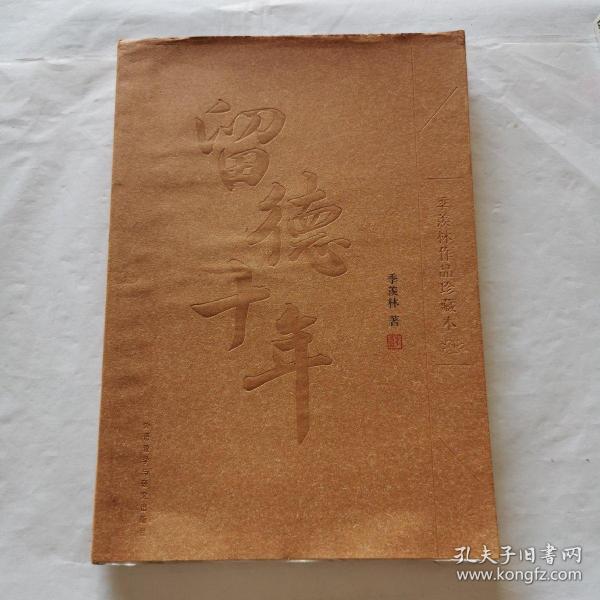 留德十年
季羡林作品珍藏本
季羡林 著
外语教学与研究出版社
孔夫子旧书网
www.kongfz.com